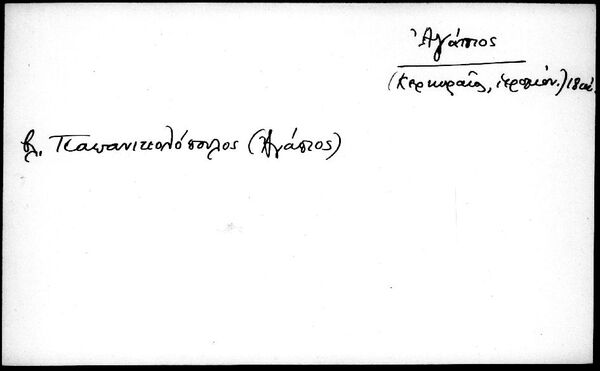 Ἀγάπιος
(Κερκυραῖος, ἱερομόν.) 18 αἰ.
βλ. Παπανικολόπουλος (Ἀγάπιος)